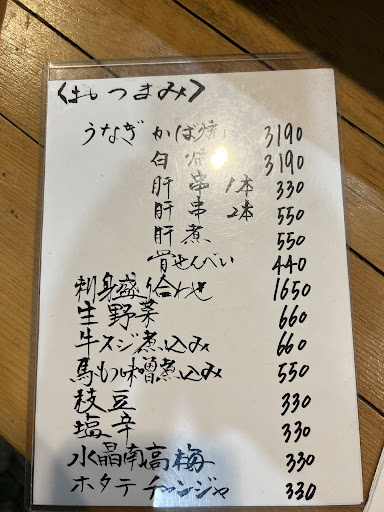 <おつまみ>
うなぎ かば焼 3190
白焼 3190
肝串 1本 330
肝串 2本 550
肝煮 550
骨せんべい 440
刺身盛り合わせ 1650
生野菜 660
牛スジ煮込み 660
馬もつ味噌煮込み 550
枝豆 330
塩辛 330
水晶南高梅 330
ホタテチャンジャ 330